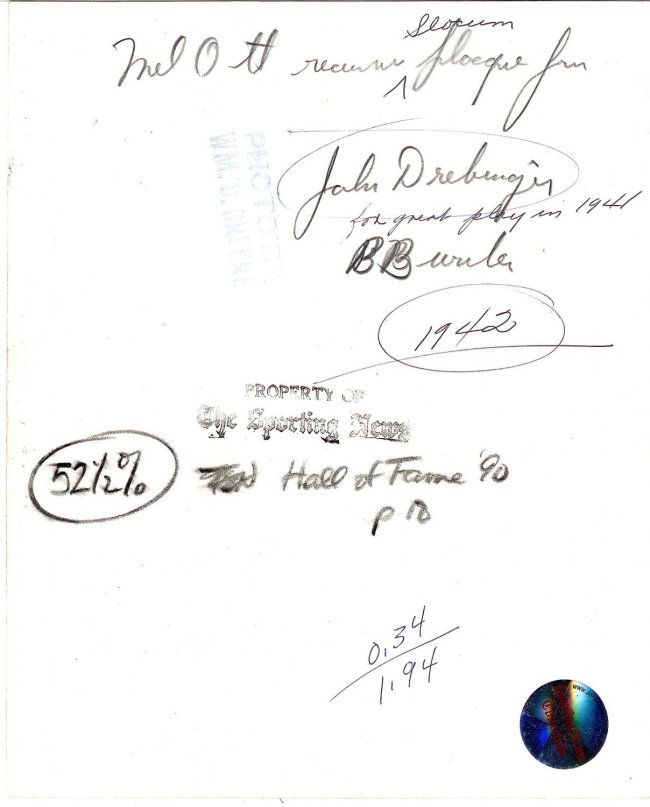 Slocum
Mel Ott receives plocque from
John Drebinger
for great play in 1941
BB writer
1942
PHOTO BY
WM. C. GREENE
PROPERTY OF
The Sporting News
52½%
Hall of Fame '90
p 18
0.34
1.94